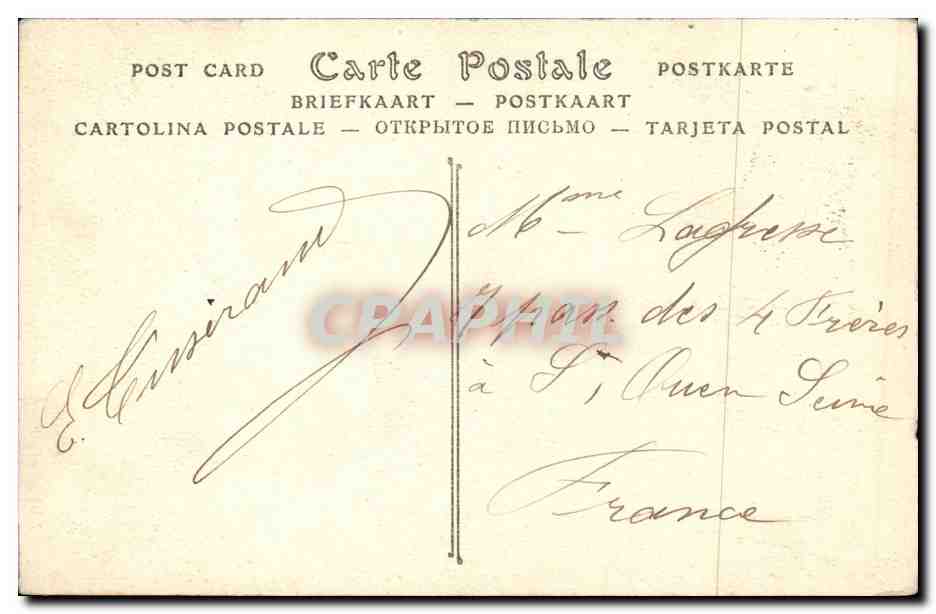 POST CARD Carte Postale POSTKARTE
BRIEFKAART — POSTKAART
CARTOLINA POSTALE — ОТКРЫТОЕ ПИСЬМО — TARJETA POSTAL
E.
Mme
7 pas. des 4 Frères
à St, Ouen Seine
France
CPAPHIL